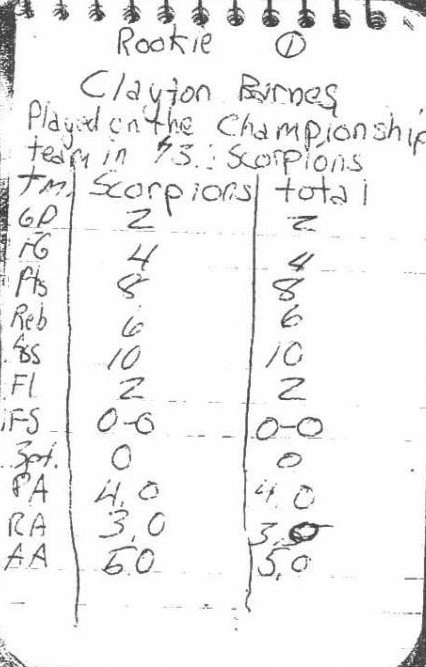 Rookie ①
Clayton Barnes
Played on the Championship
team in 93: Scorpions
Tm. Scorpions total
GP 2 2
FG 4 4
Pts 8 8
Reb 6 6
Ass 10 10
Fl 2 2
FS 0-0 0-0
3pt. 0 0
PA 4.0 4.0
RA 3.0 3.0
AA 5.0 5.0